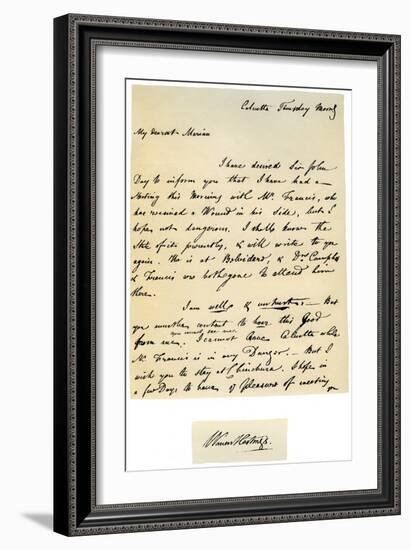 Calcutta Thursday Morng
My dearest Marian
I have desired Sir John
Day to inform you that I have had a
Meeting this Morning with Mr. Francis, who
has received a Wound in his Side, but I
hope not dangerous. I shall know the
State of it presently, & will write to you
again. He is at Belvidere, & Drs. Campbell
& Francis are both gone to attend him
there.
I am well & unhurt. — But
you must be content to hear this Good
from me. you must not see me. I cannot leave Calcutta while
Mr. Francis is in any Danger. — But I
wish you to stay at Chinchura. I hope in
a few Days to have ye Pleasure of meeting
you
Warren Hastings.